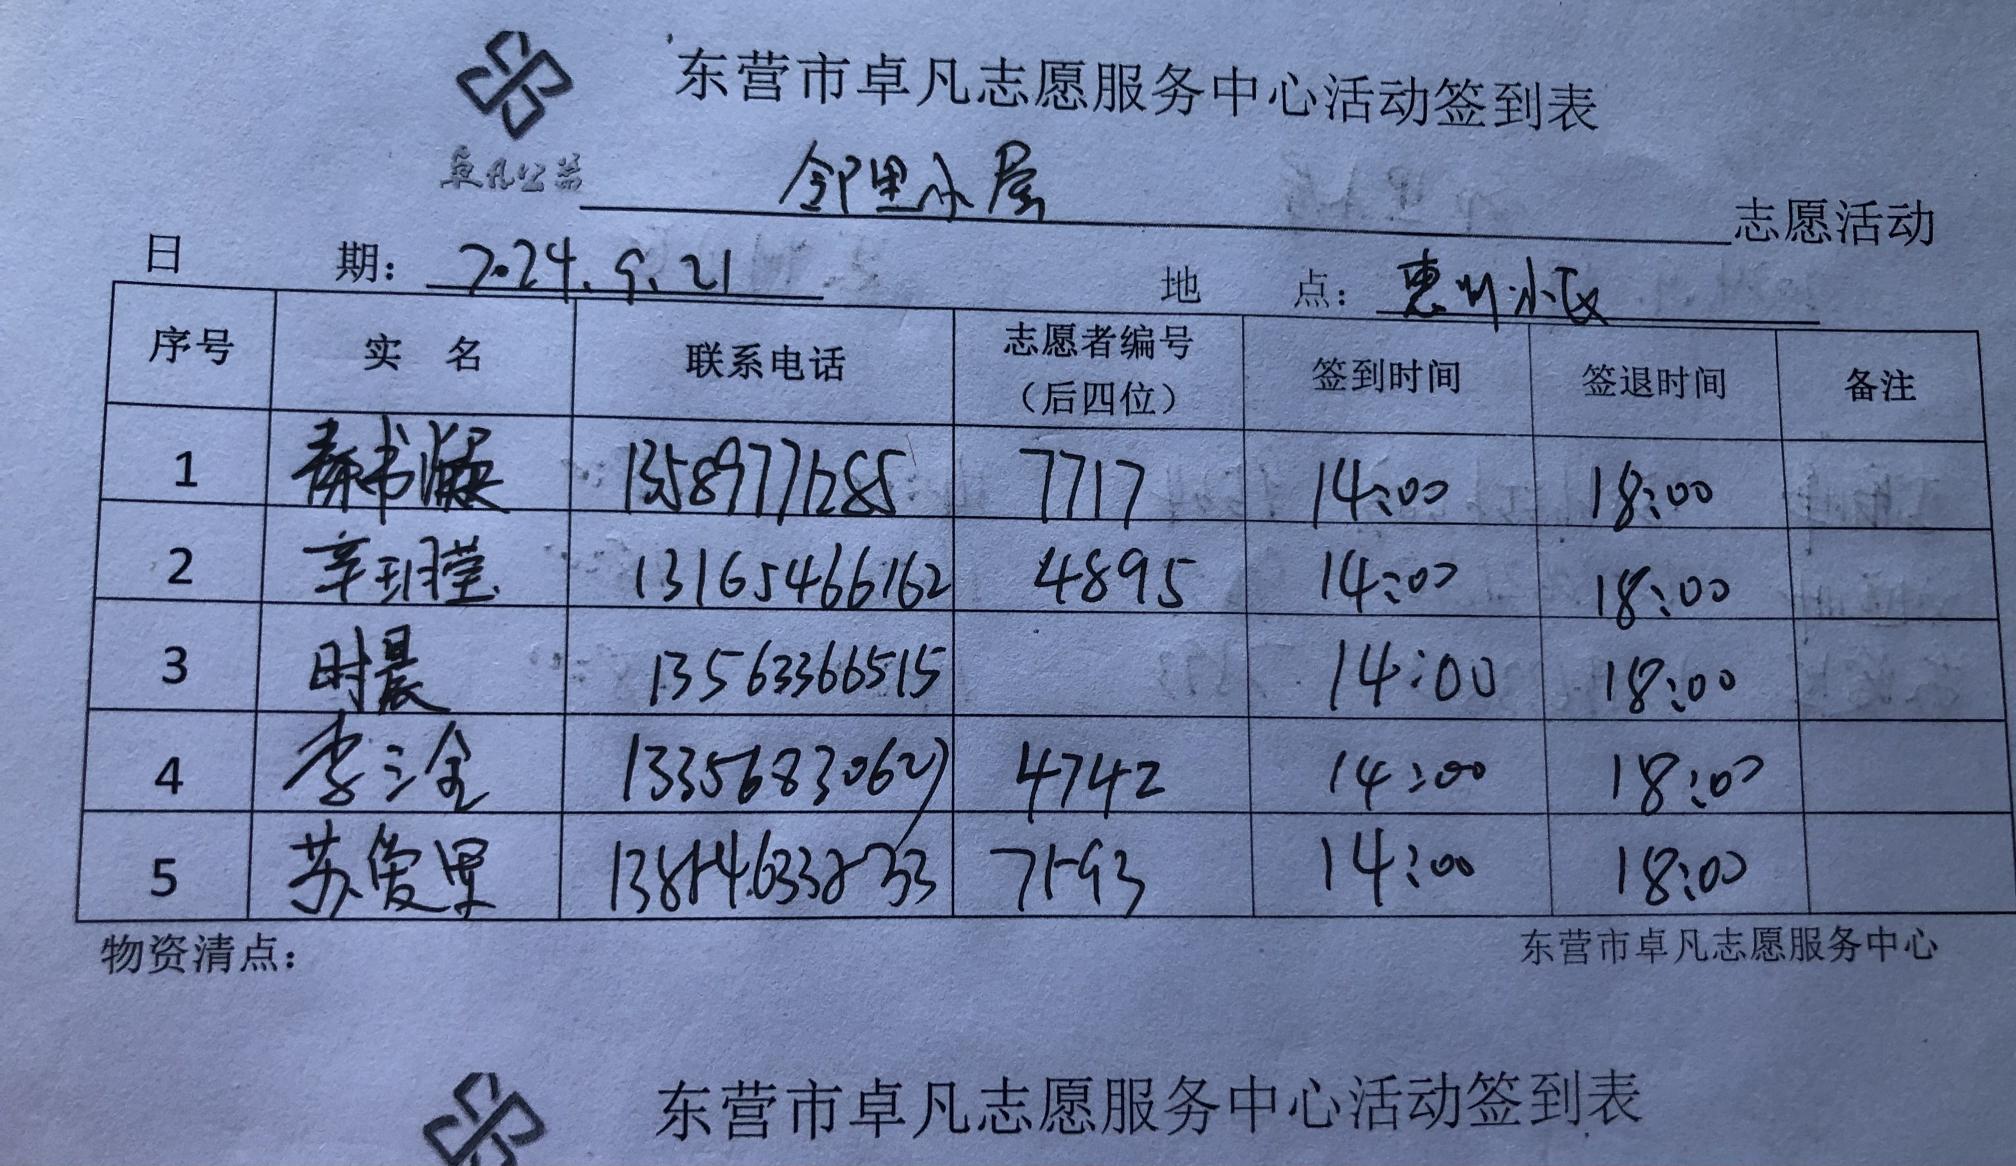 东营市卓凡志愿服务中心活动签到表
卓凡公益
邻里小屋 志愿活动
日 期： 2024.9.21 地 点： 惠州小区
序号 实 名 联系电话 志愿者编号（后四位） 签到时间 签退时间 备注
1 书 7717 14:00 18:00
2 辛玥莹 13165466162 4895 14:00 18:00
3 时晨 13563366515 14:00 18:00
4 李三全 13356830627 4742 14:00 18:00
5 苏俊 7593 14:00 18:00
物资清点： 东营市卓凡志愿服务中心
东营市卓凡志愿服务中心活动签到表